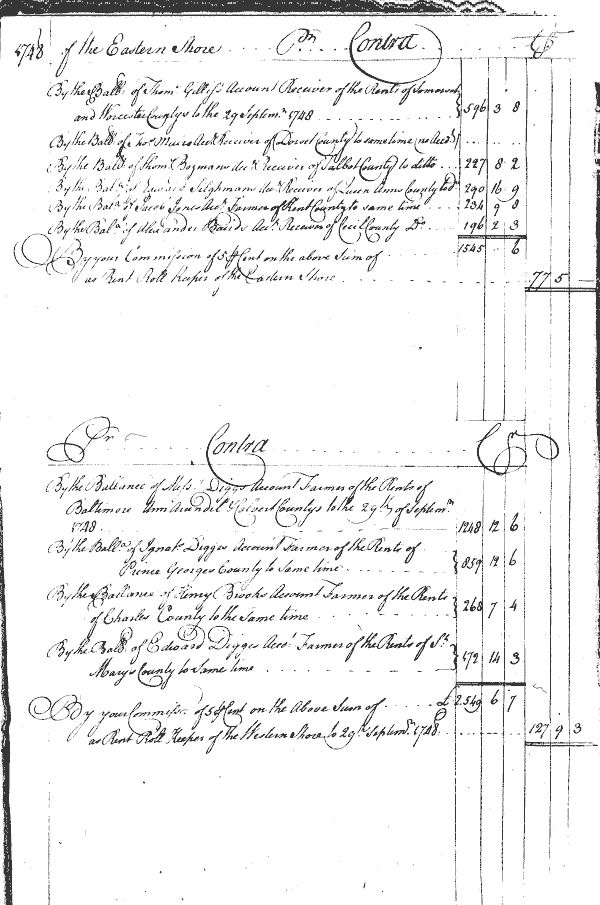 1748 of the Eastern Shore Pr Contra Cr
By the Ball. of Thoms Gilliss Account Receiver of the Rents of Somerset
and Worcester Countys to the 29 Septemr 1748 596 3 8
By the Ball. of Thos Muirs Acct Receiver of Dorset County to same time no Acct
By the Ball. of Thoms Bozmans Acct Receiver of Talbot County to ditto 227 8 2
By the Bala. of Edward Tilghmans Acct Receiver of Queen Anns County to Do 290 16 9
By the Bala. of Jacob Jones Acct Farmer of Kent County to same time 234 9 8
By the Bala. of Alexander Bairds Acct Receiver of Cecil County Do 196 2 3
1545 .. 6
By your Commission of 5 ⅌ Cent on the above Sum of
as Rent Roll Keeper of the Eastern Shore 77 5 —
Pr Contra Cr
By the Ballance of Messrs Diggs Account Farmer of the Rents of
Baltimore Ann Arundel & Calvert Countys to the 29th of Septemr
1748 1248 12 6
By the Balla. of Ignats Digges Account Farmer of the Rents of
Prince Georges County to Same time 859 12 6
By the Ballance of Henry Brooks Account Farmer of the Rents
of Charles County to the Same time 268 7 4
By the Balla. of Edward Digges Acct Farmer of the Rents of St
Marys County to Same time 172 14 3
£ 2549 6 7
By your Commissn. of 5 ⅌ Cent on the Above Sum of
as Rent Roll Keeper of the Western Shore to 29th Septemr 1748 127 9 3